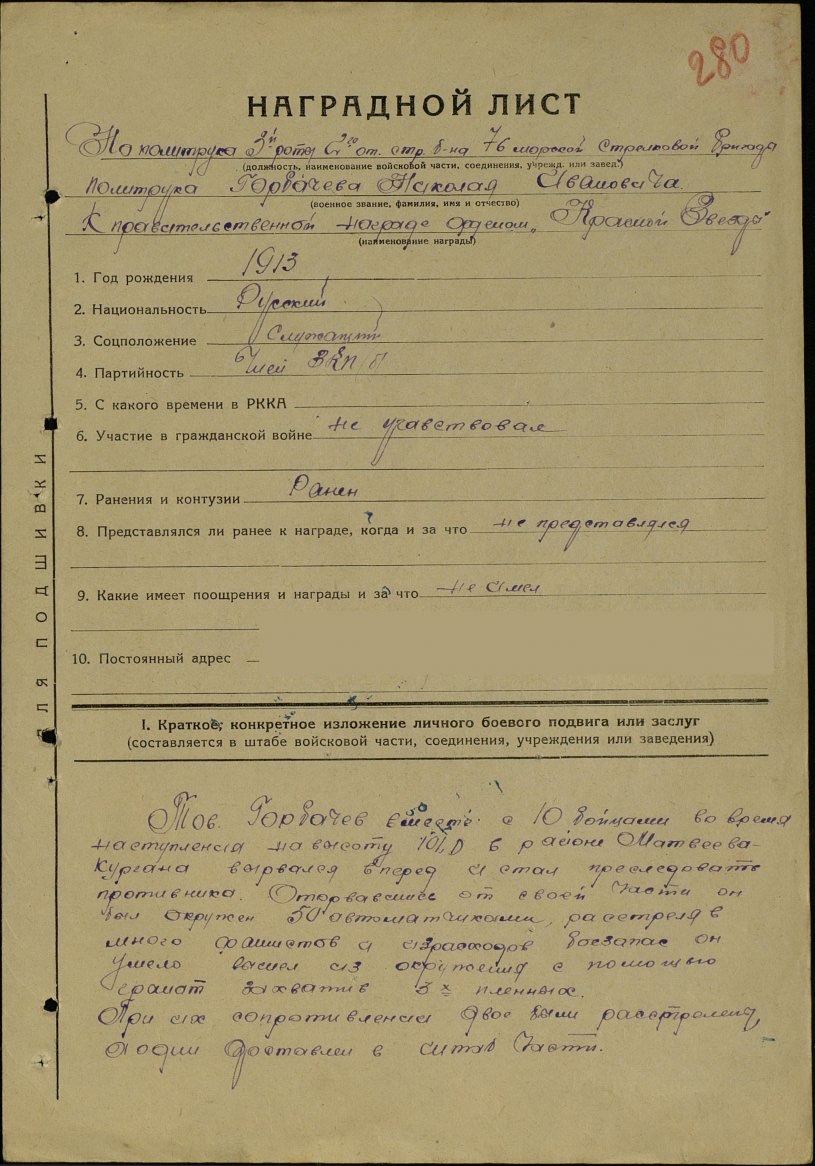 280
НАГРАДНОЙ ЛИСТ
На политрука 3й роты 2го от. стр. б-на 76 морской Стрелковой Бригады
(должность, наименование войсковой части, соединения, учрежд. или завед.)
политрука Горбачева Николая Ивановича.
(военное звание, фамилия, имя и отчество)
К правительственной награде орденом „Красной Звезды"
(наименование награды)
1. Год рождения 1913
2. Национальность Русский
3. Соцположение Служащий
4. Партийность Член ВКП(б)
5. С какого времени в РККА
6. Участие в гражданской войне не учавствовал
7. Ранения и контузии Ранен
8. Представлялся ли ранее к награде, когда и за что не представлялся
9. Какие имеет поощрения и награды и за что не имел
10. Постоянный адрес
ДЛЯ ПОДШИВКИ
I. Краткое, конкретное изложение личного боевого подвига или заслуг
(составляется в штабе войсковой части, соединения, учреждения или заведения)
Тов. Горбачев вместе с 10 бойцами во время
наступления на высоту в районе Матвеева-
Кургана вырвался вперед и стал преследовать
противника. Оторвавшись от своей части он
был окружен 50 автоматчиками, расстреляв
много фашистов и израсходов боезапас он
умело вышел из окружения с помощью
гранат захватив 3х пленных.
При их сопротивлении двое были расстреляны,
а один доставлен в штаб части.